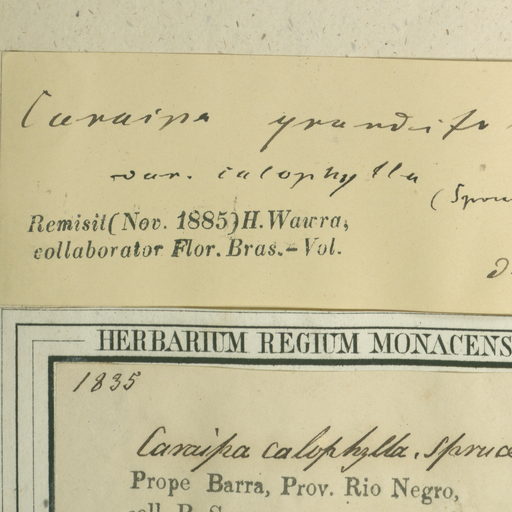 Caraipa grandifo
var. calophylla
(Spruc
Remisit (Nov. 1885) H. Wawra,
collaborator Flor. Bras. – Vol.
HERBARIUM REGIUM MONACENS
1835
Caraipa calophylla, Spruce
Prope Barra, Prov. Rio Negro,
coll. R. S